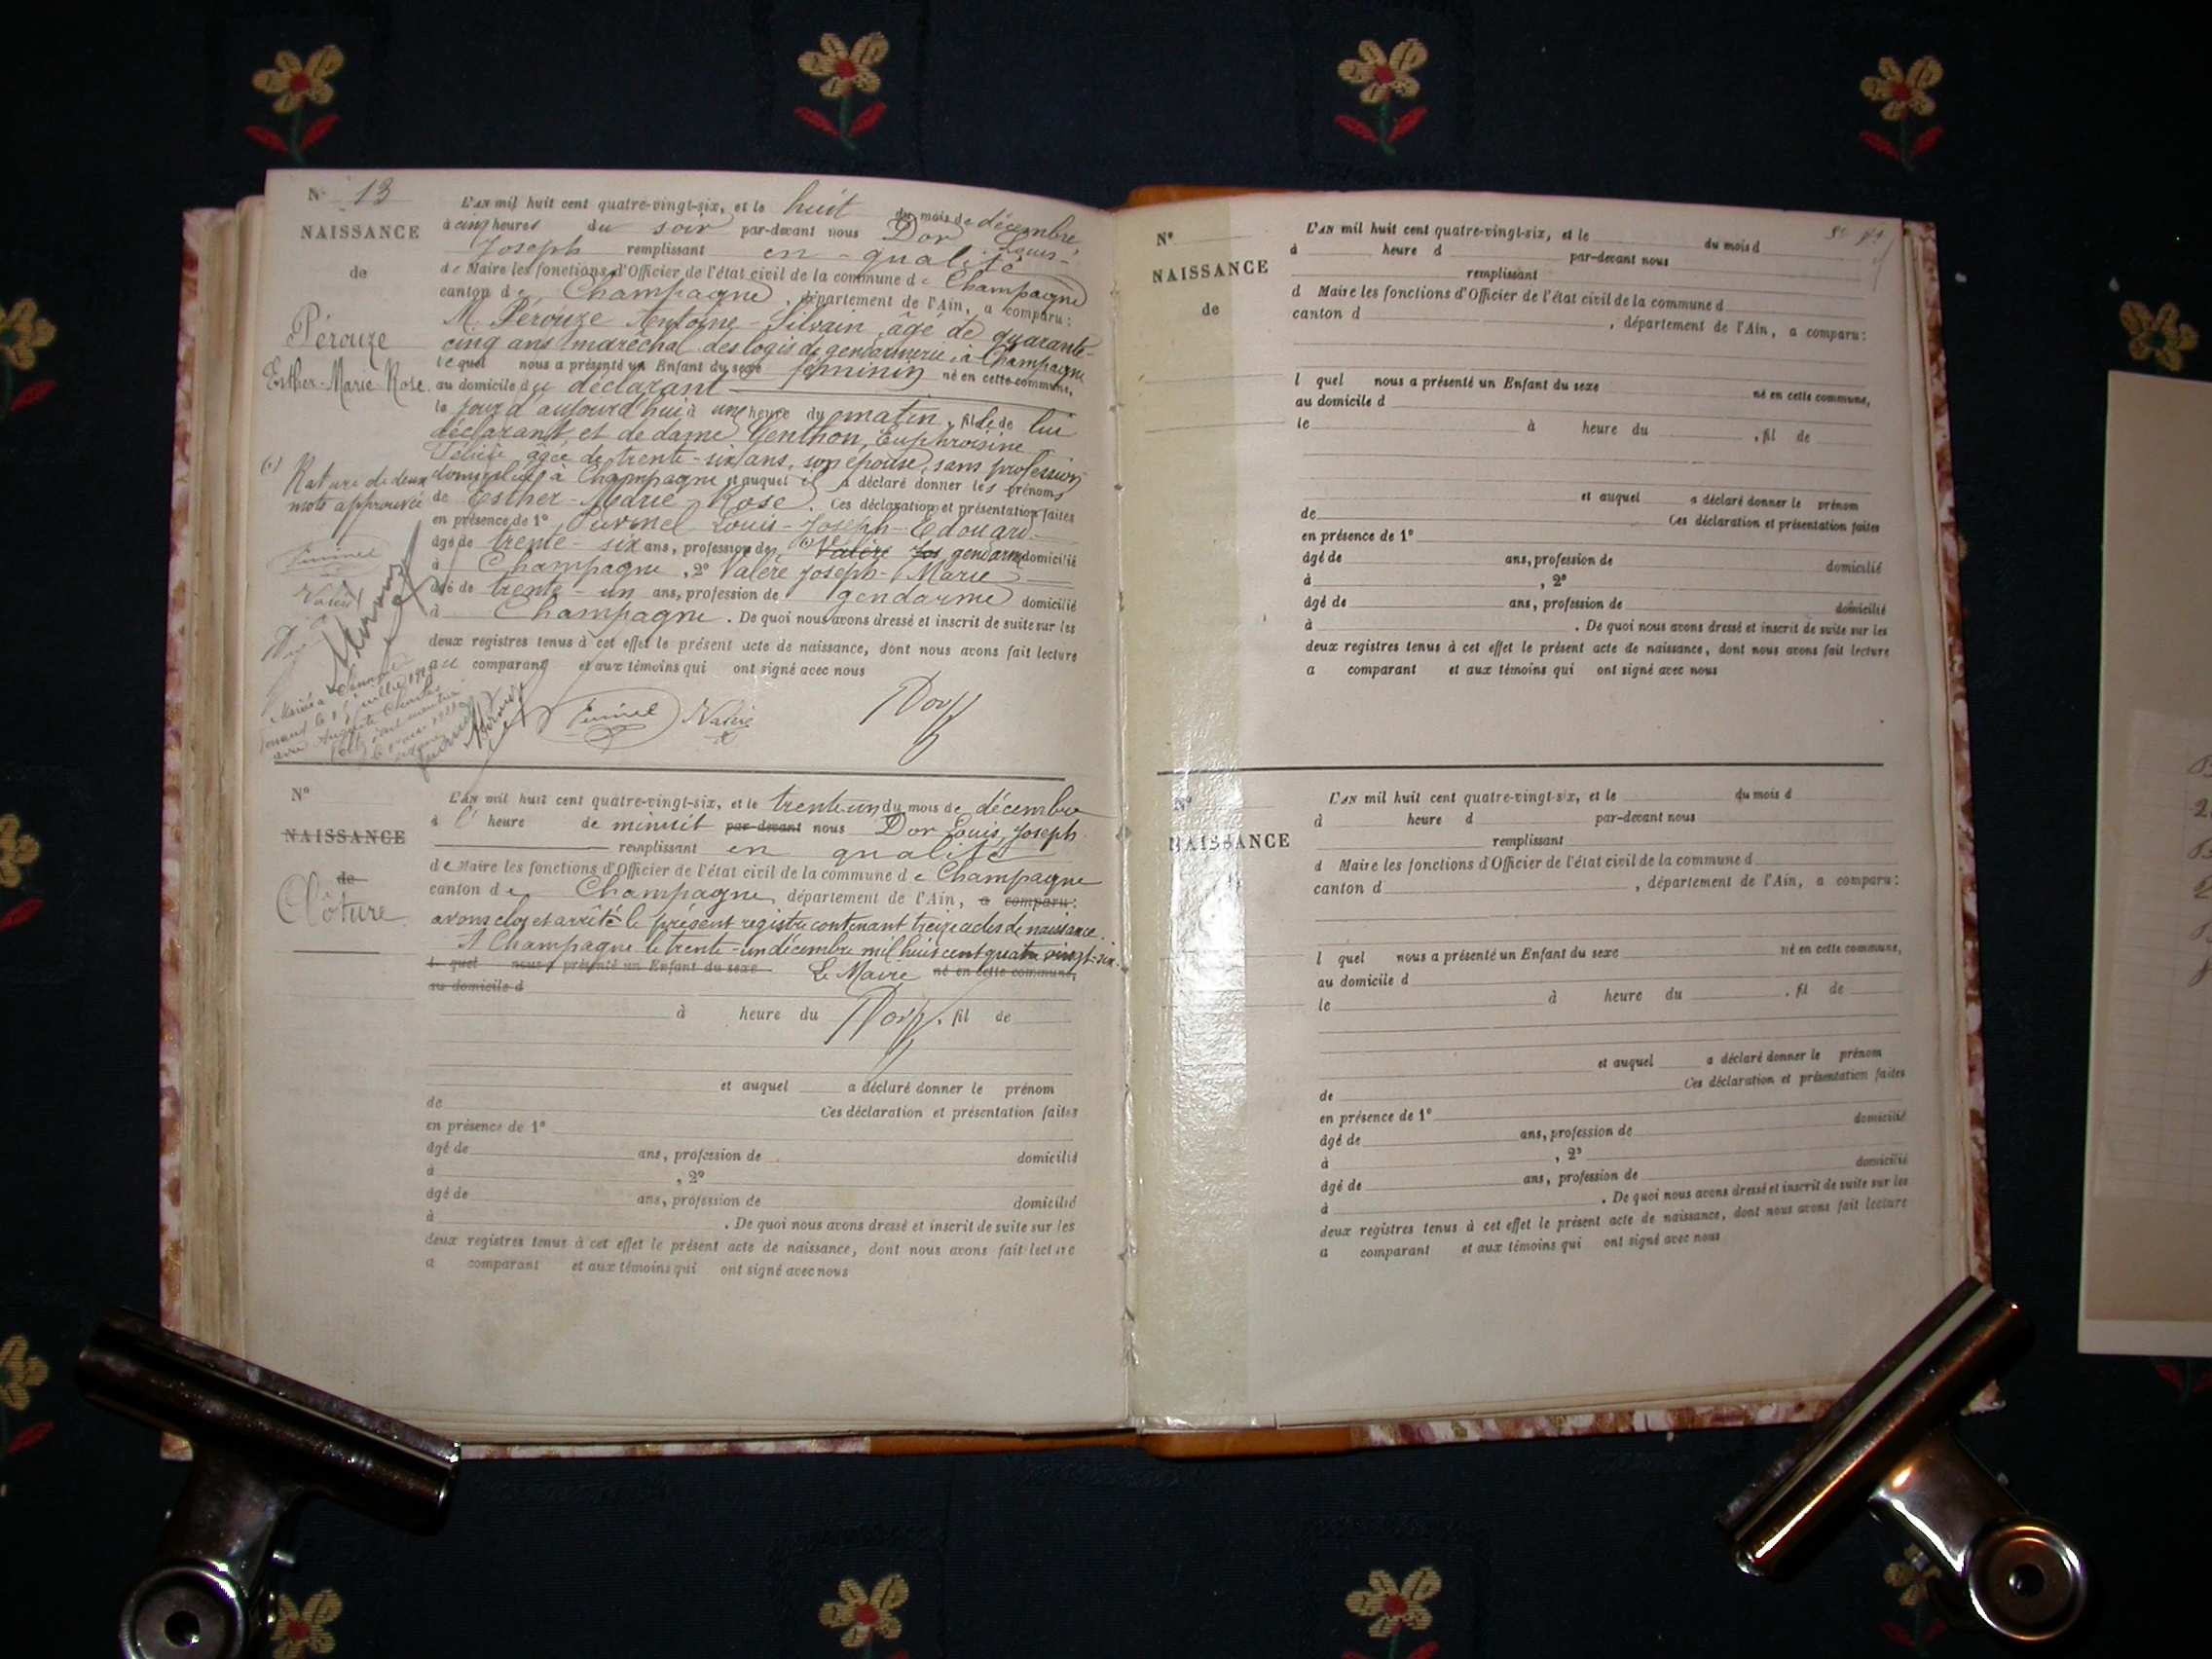 N° 13
NAISSANCE
de
Pérouze
Esther-Marie Rose.
L'AN mil huit cent quatre-vingt-six, et le huit du mois de décembre
à cinq heures du soir par-devant nous Dor Louis-
Joseph remplissant en-qualité
de Maire les fonctions d'Officier de l'état civil de la commune de Champagne
canton de Champagne, département de l'Ain, a comparu:
M. Pérouze Antoine-Silvain, âgé de quarante-
cinq ans maréchal des logis de gendarmerie, à Champagne
lequel nous a présenté un Enfant du sexe féminin né en cette commune,
au domicile du déclarant
le jour d'aujourd'hui à une heure du matin, fille de lui
déclarant et de dame Genthon, Euphroisine
âgée de trente-six ans, son épouse, sans profession
domiciliés à Champagne et auquel il a déclaré donner les prénoms
de Esther-Marie-Rose. Ces déclaration et présentation faites
en présence de 1° Louis-Joseph-Edouard
âgé de trente-six ans, profession de Valère Jos gendarme domicilié
à Champagne, 2° Valère Joseph-Marie
âgé de trente-un ans, profession de gendarme domicilié
à Champagne. De quoi nous avons dressé et inscrit de suite sur les
deux registres tenus à cet effet le présent acte de naissance, dont nous avons fait lecture
au comparant et aux témoins qui ont signé avec nous
Valère
Dor
Rature de deux
mots approuvée
N°
NAISSANCE
de
Clôture
L'AN mil huit cent quatre-vingt-six, et le trente-un du mois de décembre
à l' heure de minuit par-devant nous Dor Louis, Joseph
remplissant en qualité
de Maire les fonctions d'Officier de l'état civil de la commune de Champagne
canton de Champagne, département de l'Ain, a comparu:
avons clos et arrêté le présent registre contenant treize actes de naissance.
A Champagne le trente-un décembre mil huit cent quatre vingt-six.
l quel nous a présenté un Enfant du sexe Le Maire né en cette commune,
au domicile d
à heure du Dor, fil de
et auquel a déclaré donner le prénom
de Ces déclaration et présentation faites
en présence de 1°
âgé de ans, profession de domicilié
à , 2°
âgé de ans, profession de domicilié
à . De quoi nous avons dressé et inscrit de suite sur les
deux registres tenus à cet effet le présent acte de naissance, dont nous avons fait lecture
a comparant et aux témoins qui ont signé avec nous
N°
NAISSANCE
de
L'AN mil huit cent quatre-vingt-six, et le du mois d
à heure d par-devant nous
remplissant
d Maire les fonctions d'Officier de l'état civil de la commune d
canton d , département de l'Ain, a comparu:
l quel nous a présenté un Enfant du sexe né en cette commune,
au domicile d
le à heure du , fil de
et auquel a déclaré donner le prénom
de Ces déclaration et présentation faites
en présence de 1°
âgé de ans, profession de domicilié
à , 2°
âgé de ans, profession de domicilié
à . De quoi nous avons dressé et inscrit de suite sur les
deux registres tenus à cet effet le présent acte de naissance, dont nous avons fait lecture
a comparant et aux témoins qui ont signé avec nous
N°
NAISSANCE
L'AN mil huit cent quatre-vingt-six, et le du mois d
à heure d par-devant nous
remplissant
d Maire les fonctions d'Officier de l'état civil de la commune d
canton d , département de l'Ain, a comparu:
l quel nous a présenté un Enfant du sexe né en cette commune,
au domicile d
le à heure du , fil de
et auquel a déclaré donner le prénom
de Ces déclaration et présentation faites
en présence de 1°
âgé de ans, profession de domicilié
à , 2°
âgé de ans, profession de domicilié
à . De quoi nous avons dressé et inscrit de suite sur les
deux registres tenus à cet effet le présent acte de naissance, dont nous avons fait lecture
a comparant et aux témoins qui ont signé avec nous